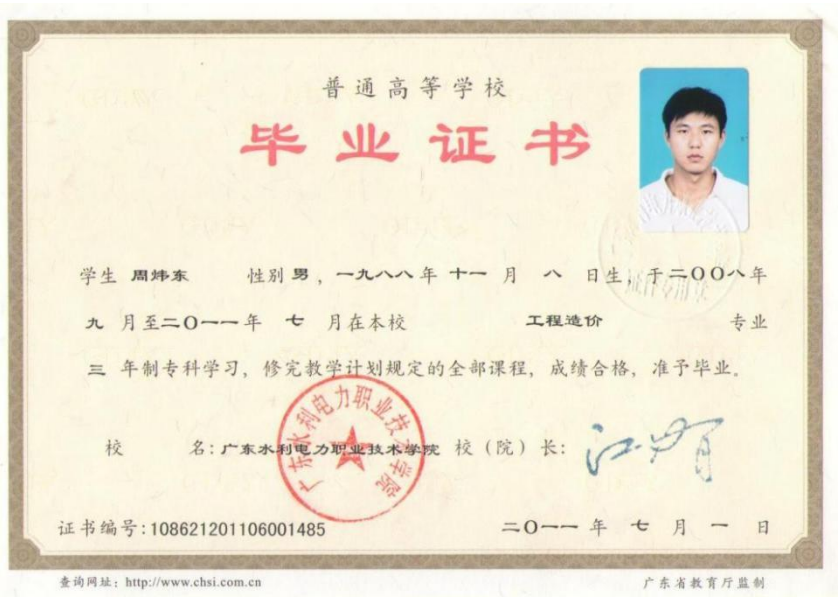 普通高等学校
毕业证书
学生 周炜东 性别 男，一九八八年 十一 月 八 日生，于二〇〇八年
九 月至二〇一一年 七 月在本校 工程造价 专业
三 年制专科学习，修完教学计划规定的全部课程，成绩合格，准予毕业。
校 名：广东水利电力职业技术学院 校（院）长：
广东水利电力职业技术学院
证书编号：108621201106001485 二〇一一 年 七 月 一 日
查询网址：http://www.chsi.com.cn 广东省教育厅监制